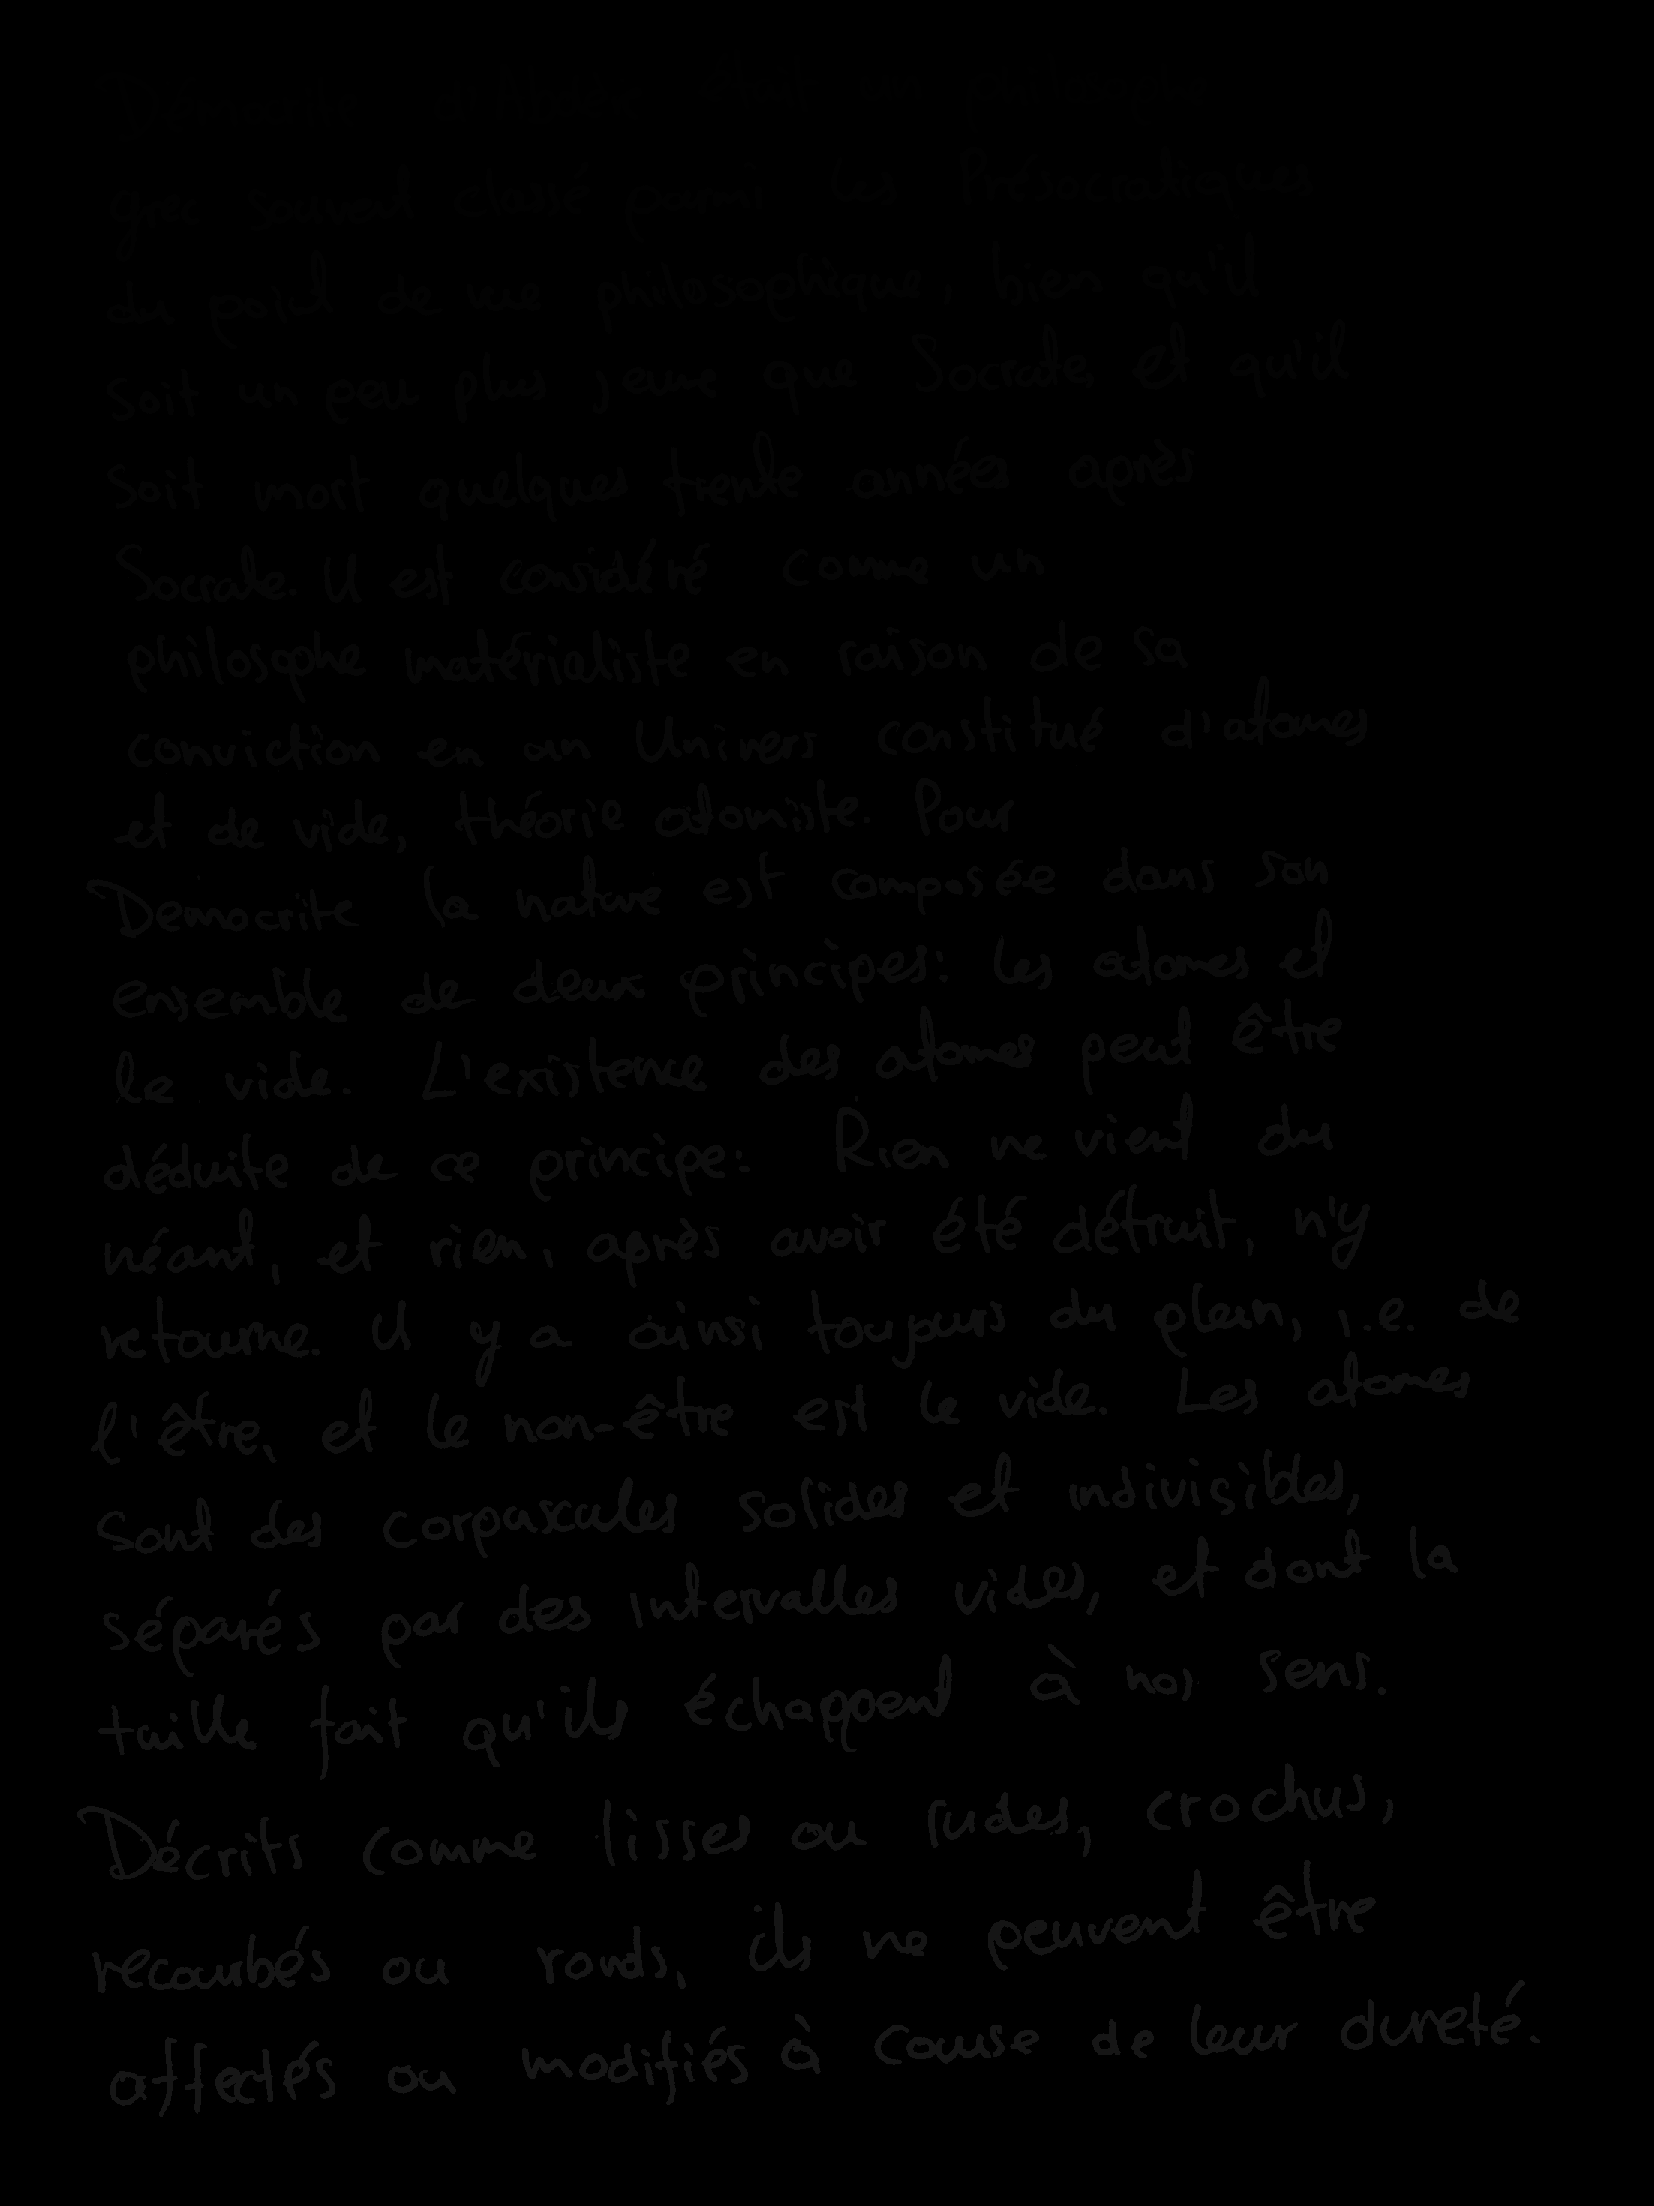 Démocrite d'Abdère était un philosophe
grec souvent classé parmi les Présocratiques
du point de vue philosophique, bien qu'il
soit un peu plus jeune que Socrate et qu'il
soit mort quelques trente années après
Socrate. Il est considéré comme un
philosophe matérialiste en raison de sa
conviction en un Univers constitué d'atomes
et de vide, théorie atomiste. Pour
Démocrite la nature est composée dans son
ensemble de deux principes: les atomes et
le vide. L'existence des atomes peut être
déduite de ce principe: Rien ne vient du
néant, et rien, après avoir été détruit, n'y
retourne. Il y a ainsi toujours du plein, i.e. de
l'être, et le non-être est le vide. Les atomes
sont des corpuscules solides et indivisibles,
séparés par des intervalles vides, et dont la
taille fait qu'ils échappent à nos sens.
Décrits comme lisses ou rudes, crochus,
recourbés ou ronds, ils ne peuvent être
affectés ou modifiés à cause de leur dureté.